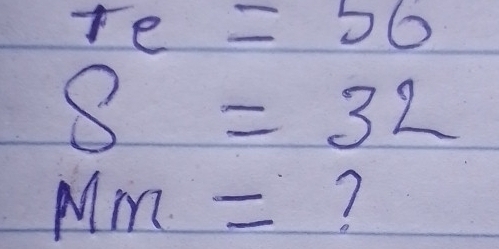 Fe = 56
S = 32
Mm = ?